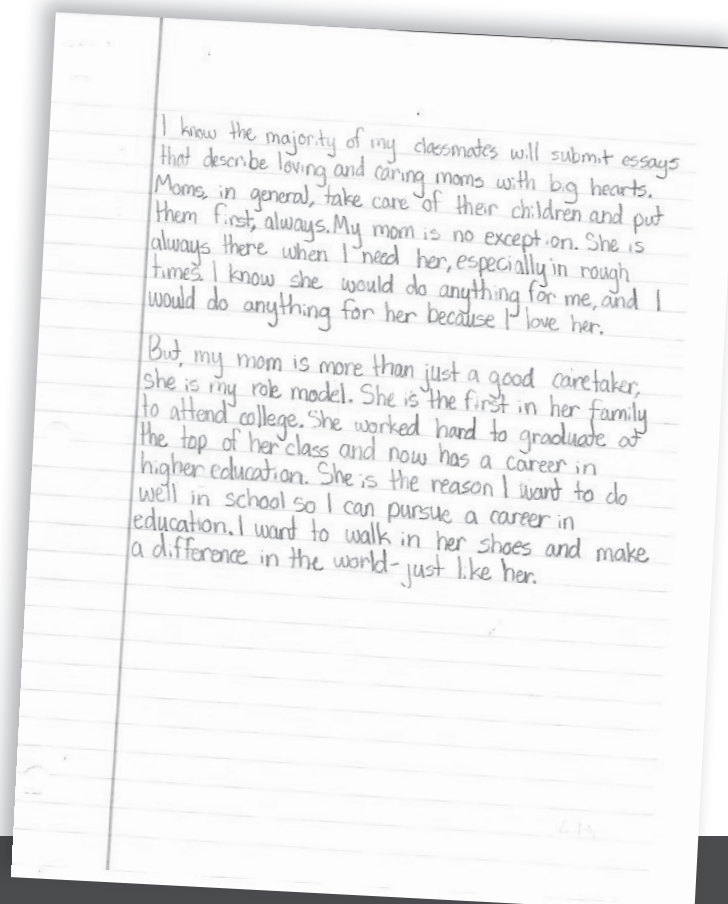 I know the majority of my classmates will submit essays
that describe loving and caring moms with big hearts.
Moms, in general, take care of their children and put
them first, always. My mom is no exception. She is
always there when I need her, especially in rough
times. I know she would do anything for me, and I
would do anything for her because I love her.
But, my mom is more than just a good caretaker,
she is my role model. She is the first in her family
to attend college. She worked hard to graduate at
the top of her class and now has a career in
higher education. She is the reason I want to do
well in school so I can pursue a career in
education. I want to walk in her shoes and make
a difference in the world-just like her.